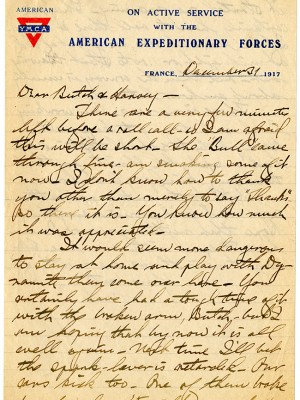 AMERICAN
Y.M.C.A.
ON ACTIVE SERVICE
WITH THE
AMERICAN EXPEDITIONARY FORCES
FRANCE, December 31 1917
Dear Butch & Harvey —
There are a very few minutes
left before roll call - so I am afraid
this will be short - The "Bull" came
through fine - am smoking some of it
now - I don't know how to thank
you other than merely to say "thanks"
so there it is - You know how much
it was appreciated -
It would seem more dangerous
to stay at home and play with Dy-
namite than come over here - You
certainly have had a tough time of it
with the broken arm, Butch - but I
am hoping that by now it is all
well again - Next time I'll bet
the spark-lever is retarded - Our
cars kick too - One of them broke